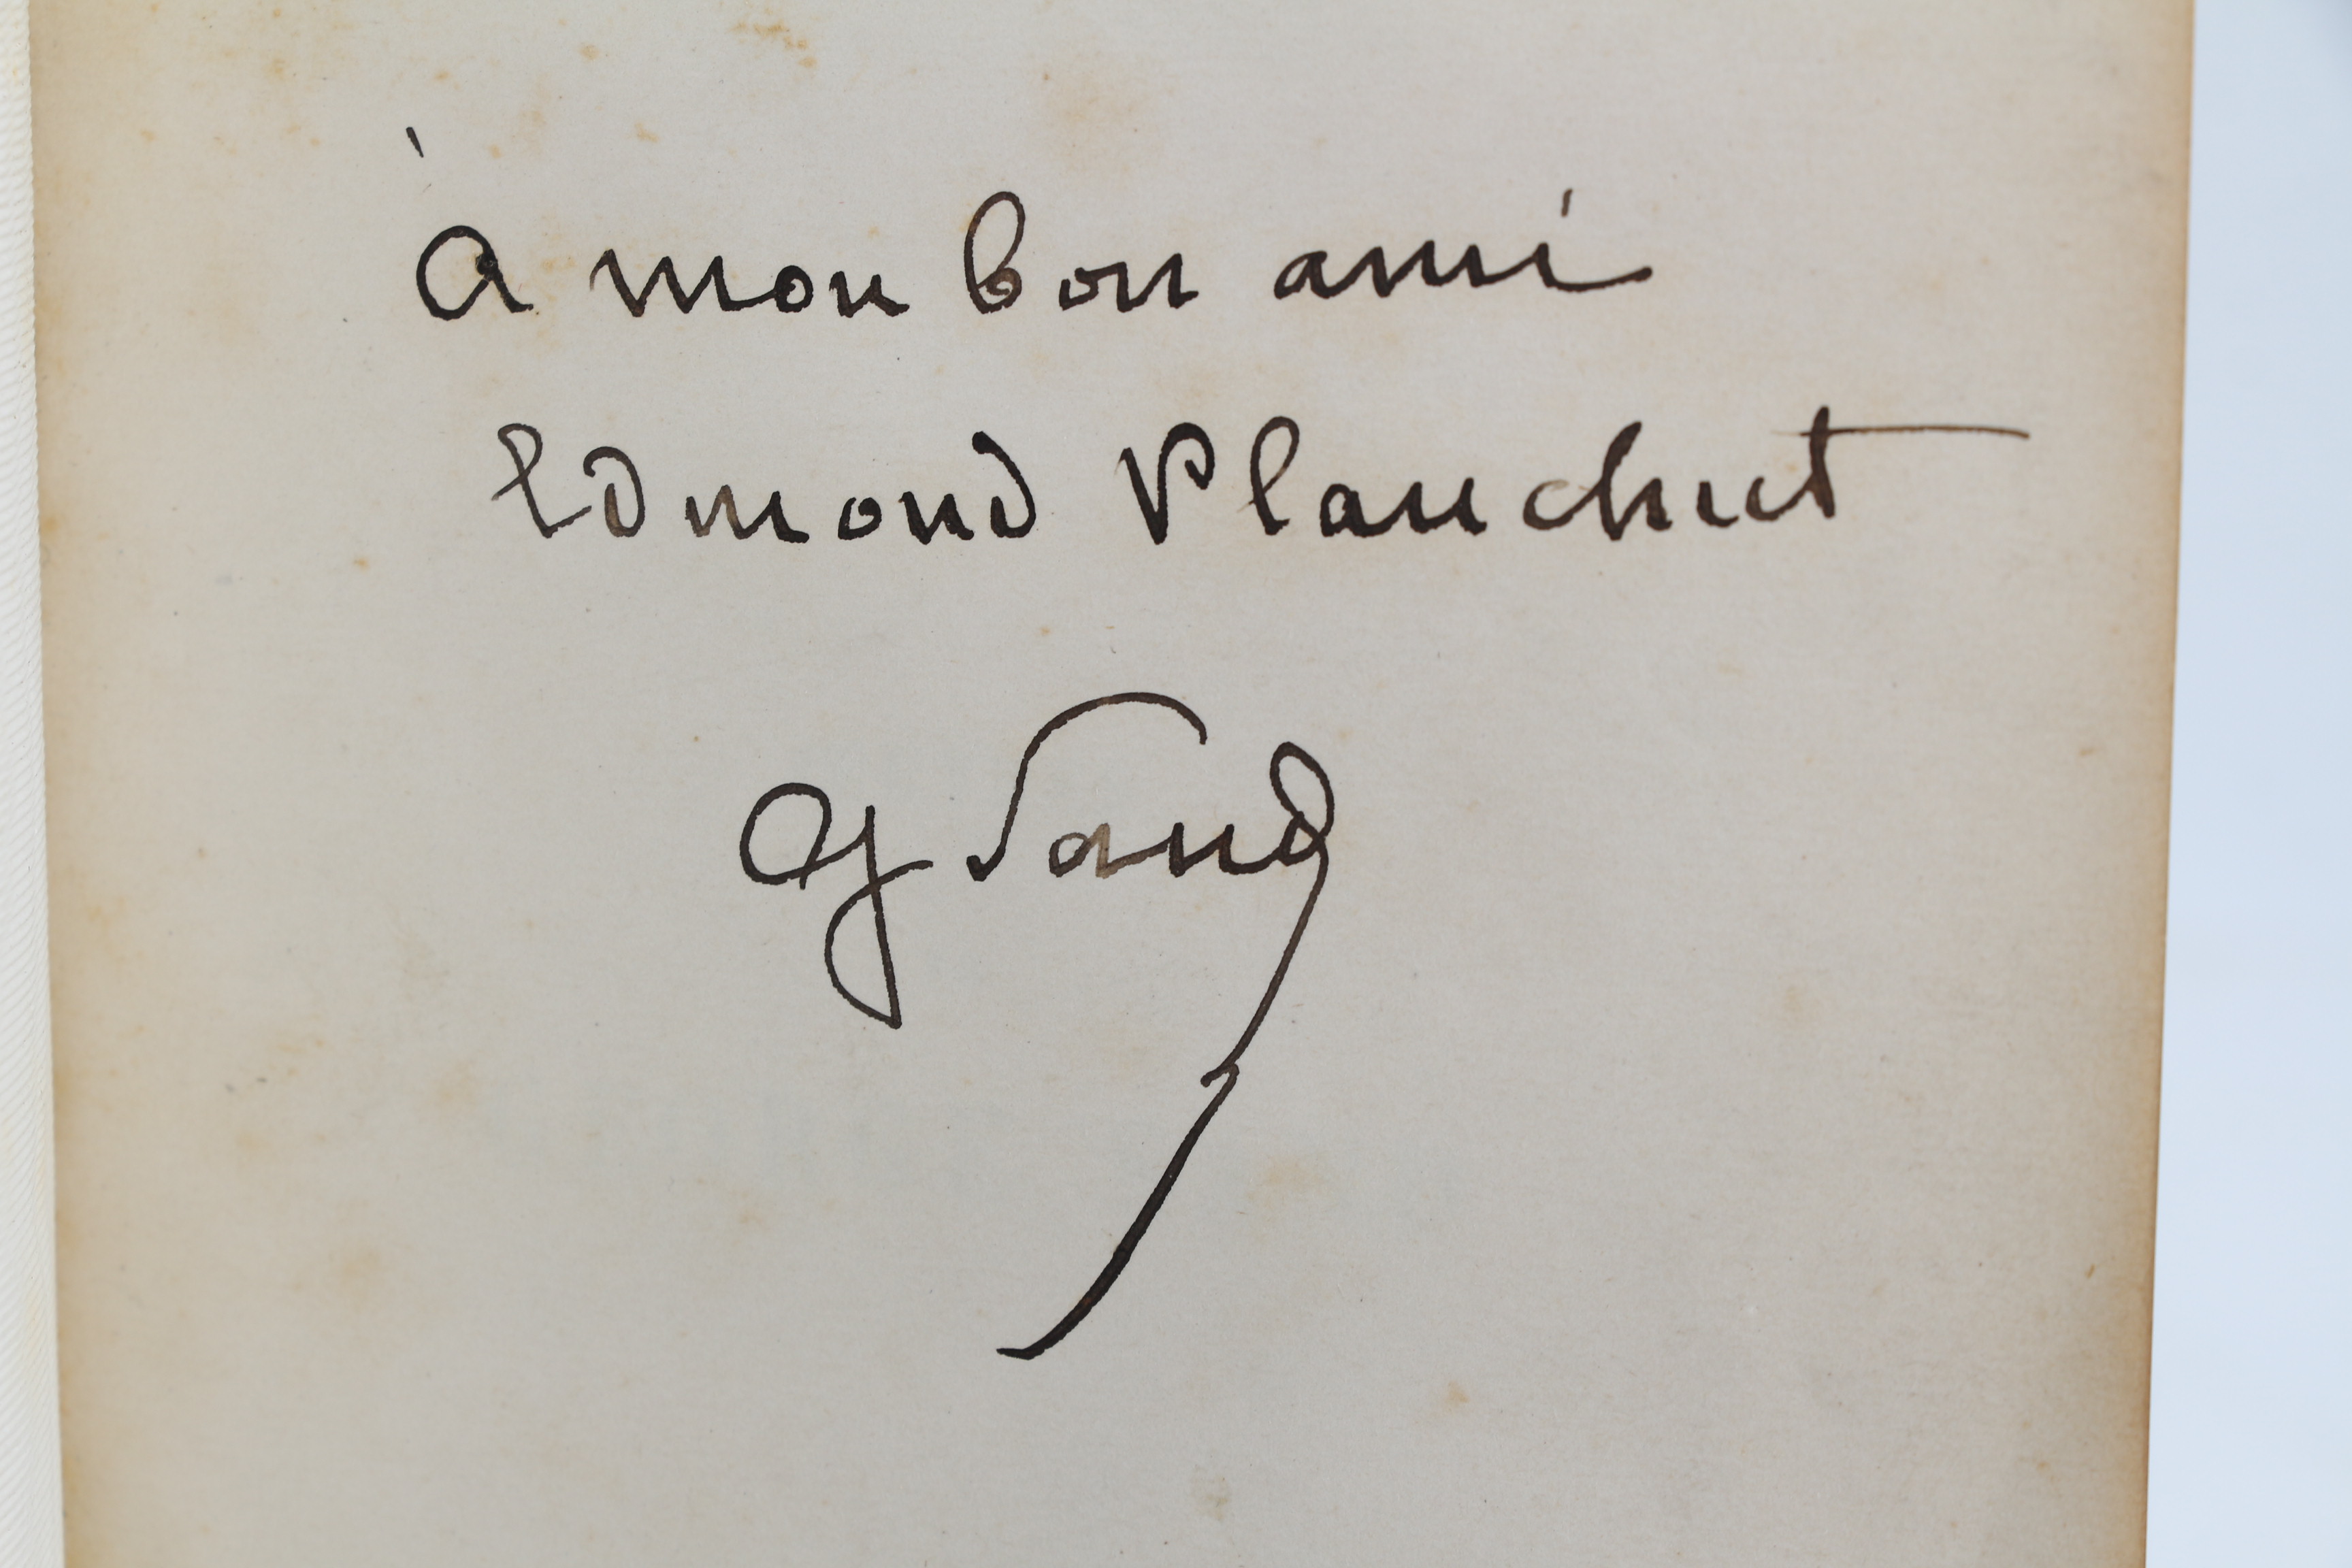 à mon bon ami
Edmond Plauchut
G Sand